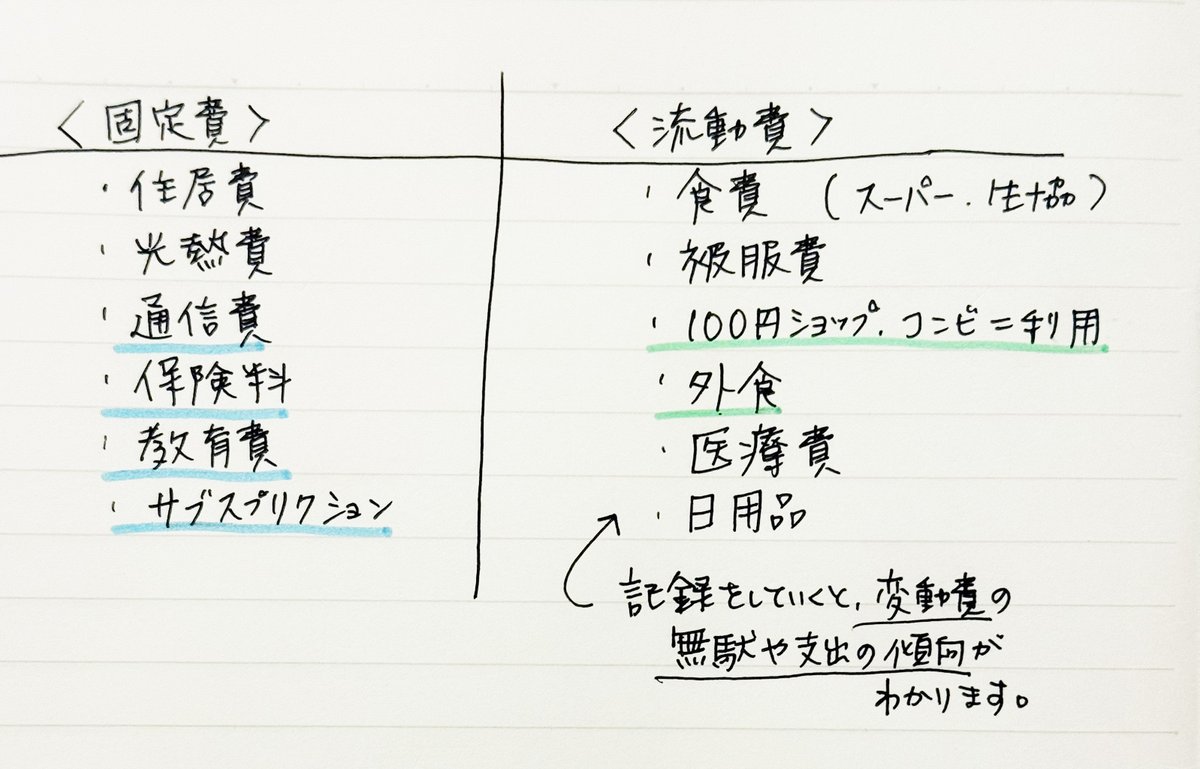 〈固定費〉
・住居費
・光熱費
・通信費
・保険料
・教育費
・サブスプリクション
〈流動費〉
・食費 (スーパー・生協)
・被服費
・100円ショップ・コンビニ利用
・外食
・医療費
・日用品
記録をしていくと、変動費の
無駄や支出の傾向が
わかります。